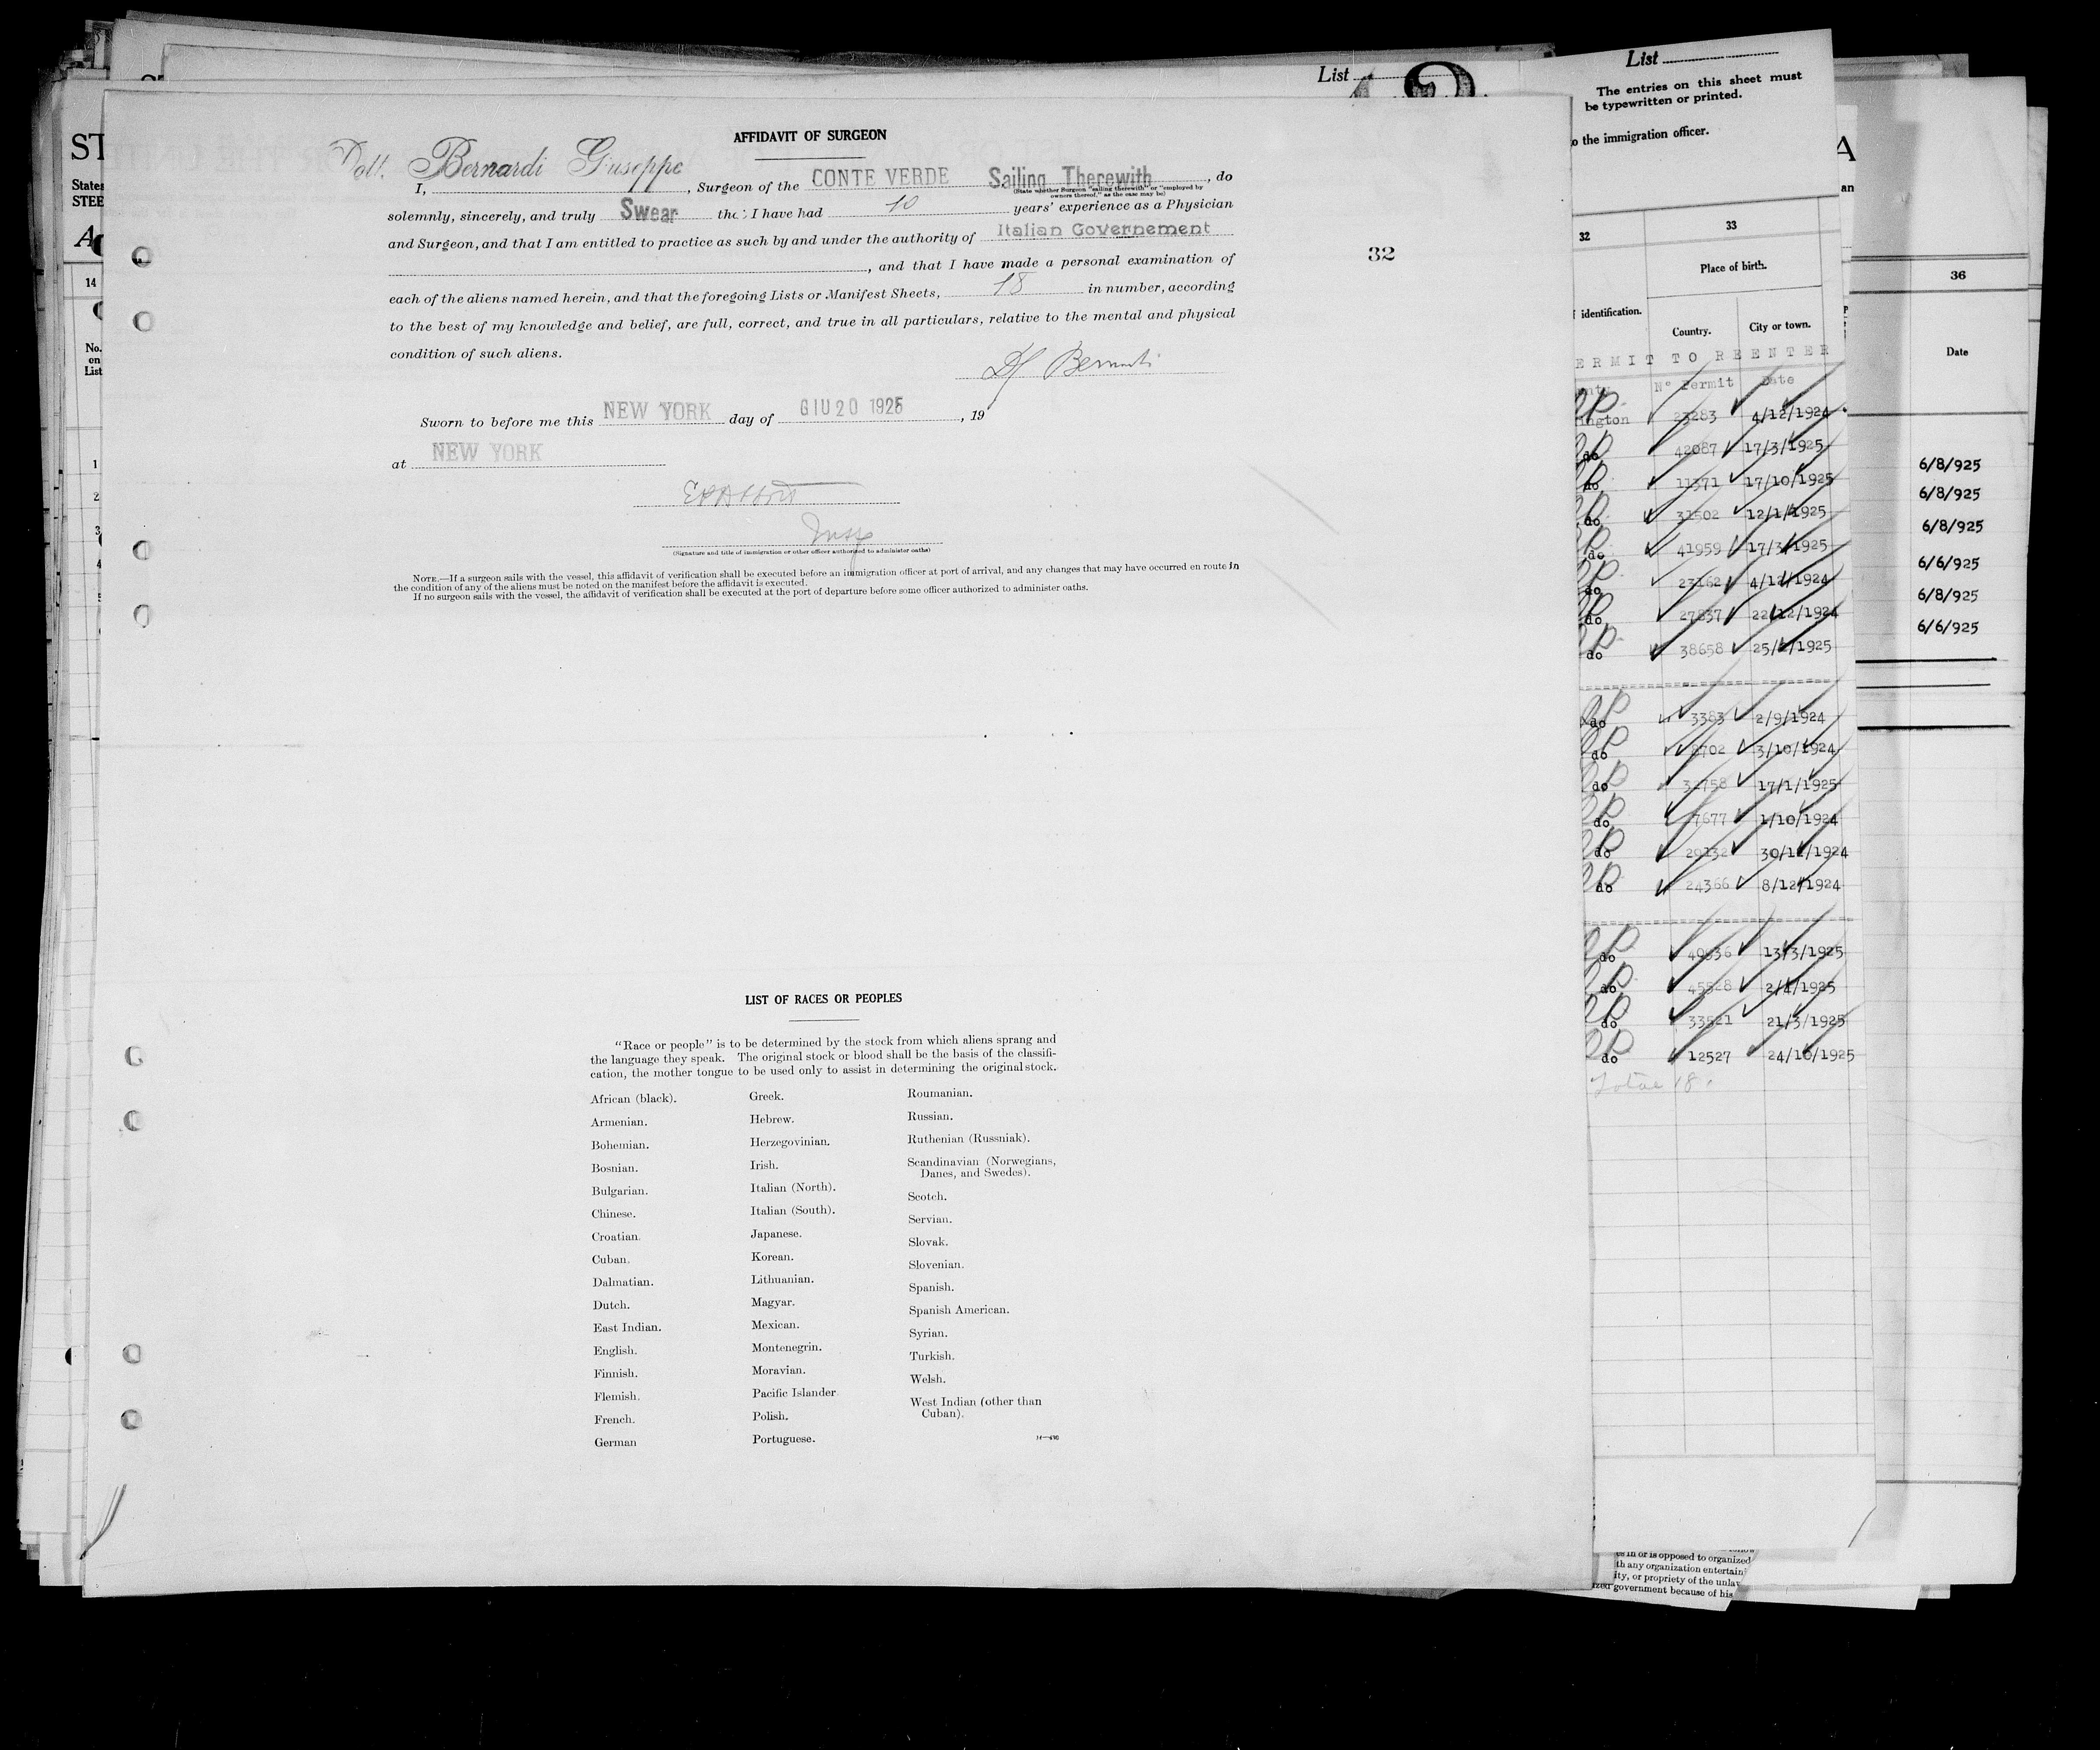 List
AFFIDAVIT OF SURGEON
Dott. Bernardi Giuseppe
I, , Surgeon of the CONTE VERDE Sailing Therewith , do
(State whether Surgeon "sailing therewith" or "employed by
owners thereof," as the case may be)
solemnly, sincerely, and truly Swear tha: I have had 10 years' experience as a Physician
and Surgeon, and that I am entitled to practice as such by and under the authority of Italian Governement
, and that I have made a personal examination of
each of the aliens named herein, and that the foregoing Lists or Manifest Sheets, 18 in number, according
to the best of my knowledge and belief, are full, correct, and true in all particulars, relative to the mental and physical
condition of such aliens.
32
Sworn to before me this NEW YORK day of GIU 20 1925 , 19
at NEW YORK
Insp
(Signature and title of immigration or other officer authorized to administer oaths)
NOTE.—If a surgeon sails with the vessel, this affidavit of verification shall be executed before an immigration officer at port of arrival, and any changes that may have occurred en route in
the condition of any of the aliens must be noted on the manifest before the affidavit is executed.
If no surgeon sails with the vessel, the affidavit of verification shall be executed at the port of departure before some officer authorized to administer oaths.
LIST OF RACES OR PEOPLES
"Race or people" is to be determined by the stock from which aliens sprang and
the language they speak. The original stock or blood shall be the basis of the classifi-
cation, the mother tongue to be used only to assist in determining the original stock.
African (black).
Armenian.
Bohemian.
Bosnian.
Bulgarian.
Chinese.
Croatian.
Cuban.
Dalmatian.
Dutch.
East Indian.
English.
Finnish.
Flemish.
French.
German
Greek.
Hebrew.
Herzegovinian.
Irish.
Italian (North).
Italian (South).
Japanese.
Korean.
Lithuanian.
Magyar.
Mexican.
Montenegrin.
Moravian.
Pacific Islander
Polish.
Portuguese.
Roumanian.
Russian.
Ruthenian (Russniak).
Scandinavian (Norwegians,
Danes, and Swedes).
Scotch.
Servian.
Slovak.
Slovenian.
Spanish.
Spanish American.
Syrian.
Turkish.
Welsh.
West Indian (other than
Cuban).
ST
States
STEE
14
No.
on
List
1
2
3
4
List
The entries on this sheet must
be typewritten or printed.
o the immigration officer.
32
33
Place of birth.
identification.
Country.
City or town.
ERMIT TO REENTER
nty N° Permit Date
ington 23283 4/12/1924
do 42087 17/3/1925
do 11371 17/10/1925
do 31502 12/1/1925
do 41959 17/3/1925
do 23162 4/12/1924
do 27837 22/12/1924
do 38658 25/2/1925
do 3383 2/9/1924
do 8702 3/10/1924
do 32758 17/1/1925
do 7677 1/10/1924
do 29132 30/12/1924
do 24366 8/12/1924
do 40936 13/3/1925
do 45528 2/4/1925
do 33521 21/3/1925
do 12527 24/10/1925
Total 18
A
an
36
Date
6/8/925
6/8/925
6/8/925
6/6/925
6/8/925
6/6/925
es in or is opposed to organized
th any organization entertain
ity, or propriety of the unlaw
ized government because of his